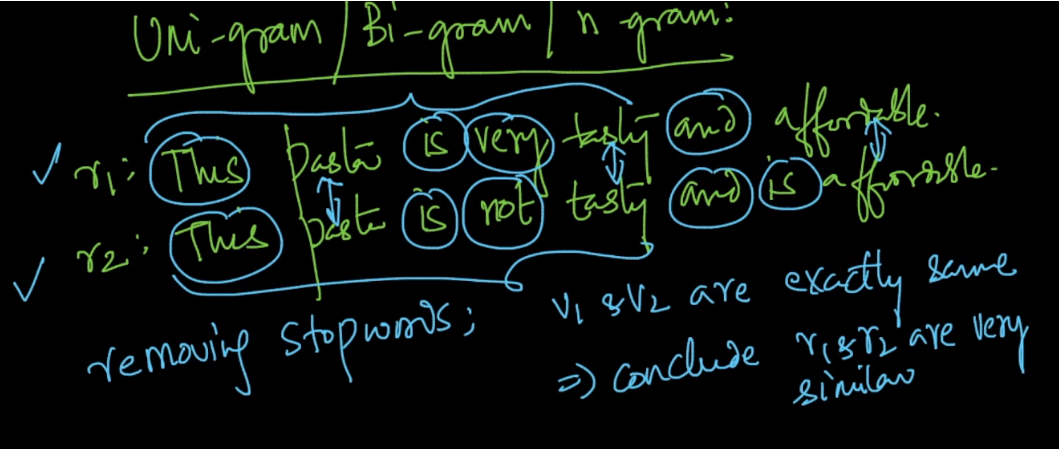 Uni-gram / Bi-gram / n-gram:
✓ r1: This pasta is very tasty and affordable.
✓ r2: This pasta is not tasty and is affordable.
removing stopwords; v1 & v2 are exactly same
⇒ conclude r1 & r2 are very
similar